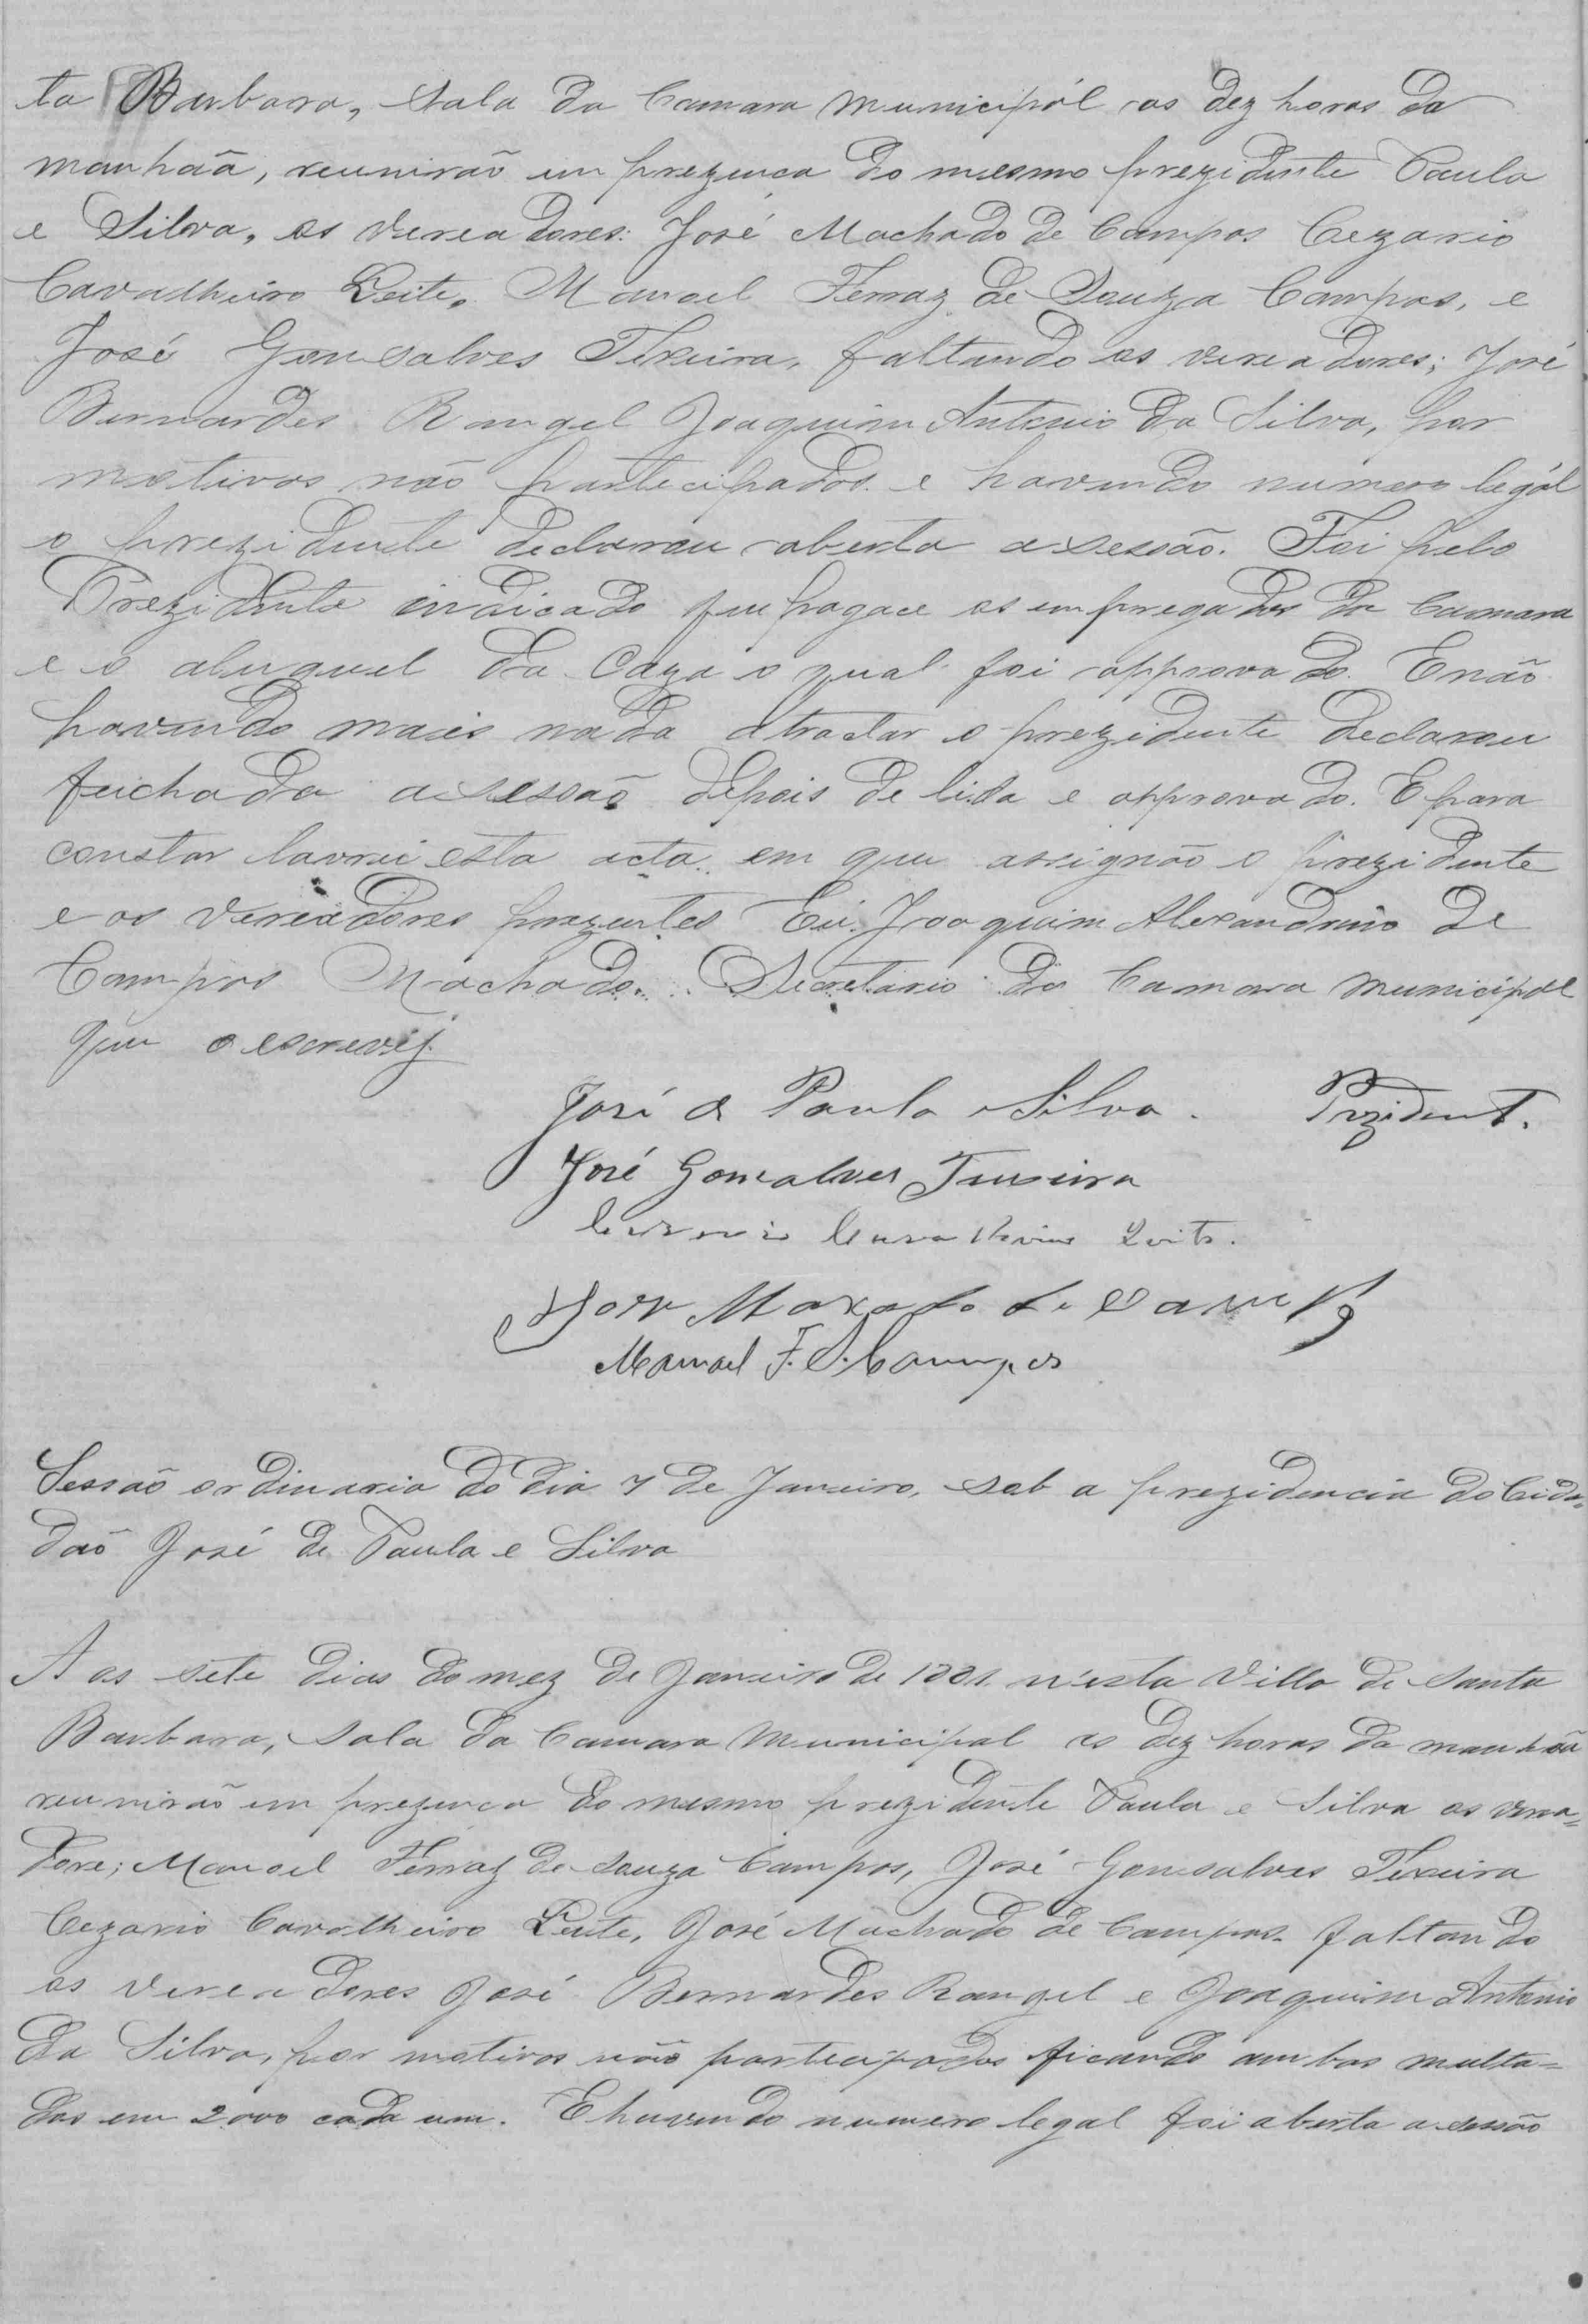 ta Barbara, Sala da Camara Municipál as dez horas da
manhãa, reunirão em prezenca do mesmo prezidente Paula
e Silva, os vereadores: José Machado de Campos Cezario
Cavalheiro Leite, Manoel Ferraz de Souza Campos, e
José Gonsalves Texeira, faltando os vereadores; José
Bernardes Rangel Joaquim Antonio da Silva, por
motivos não partecipados e havendo numero legál
o prezidente declarou aberta a sessão. Foi pelo
Prezidente indicado que pagace os empregados da Camara
e o aluguel da Caza o qual foi approvado. E não
havendo mais nada atractar o prezidente declarou
feichada a sessão depois de lida e approvado. E para
constar lavrei esta acta em que assignão o prezidente
e os vereadores prezentes Eu Joaquim Alexandrino de
Campos Machado. Secretario da Camara Municipal
que o escrevij.
José de Paula e Silva. Prezident.
José Goncalves Teixeira
Cezario Cavalheiro Leite.
José Maxado de Campos
Manoel F. S. Campos
Sessão ordinaria do dia 7 de Janeiro, sob a prezidencia do Cida=
dão José de Paula e Silva
Aos sete dias do mez de Janeiro de 1881 n'esta Villa de Santa
Barbara, Sala da Camara Municipal as dez horas da manhãa
reunirão em prezenca do mesmo prezidente Paula e Silva os verea=
dore; Manoel Ferraz de Souza Campos, José Gonsalves Texeira
Cezario Cavalheiro Leite, José Machado de Campos faltando
os vereadores José Bernardes Rangel e Joaquim Antonio
da Silva, por motivos não partecipados ficando ambos multa=
dos em 2000 cada um. E havendo numero legal foi aberta a sessão